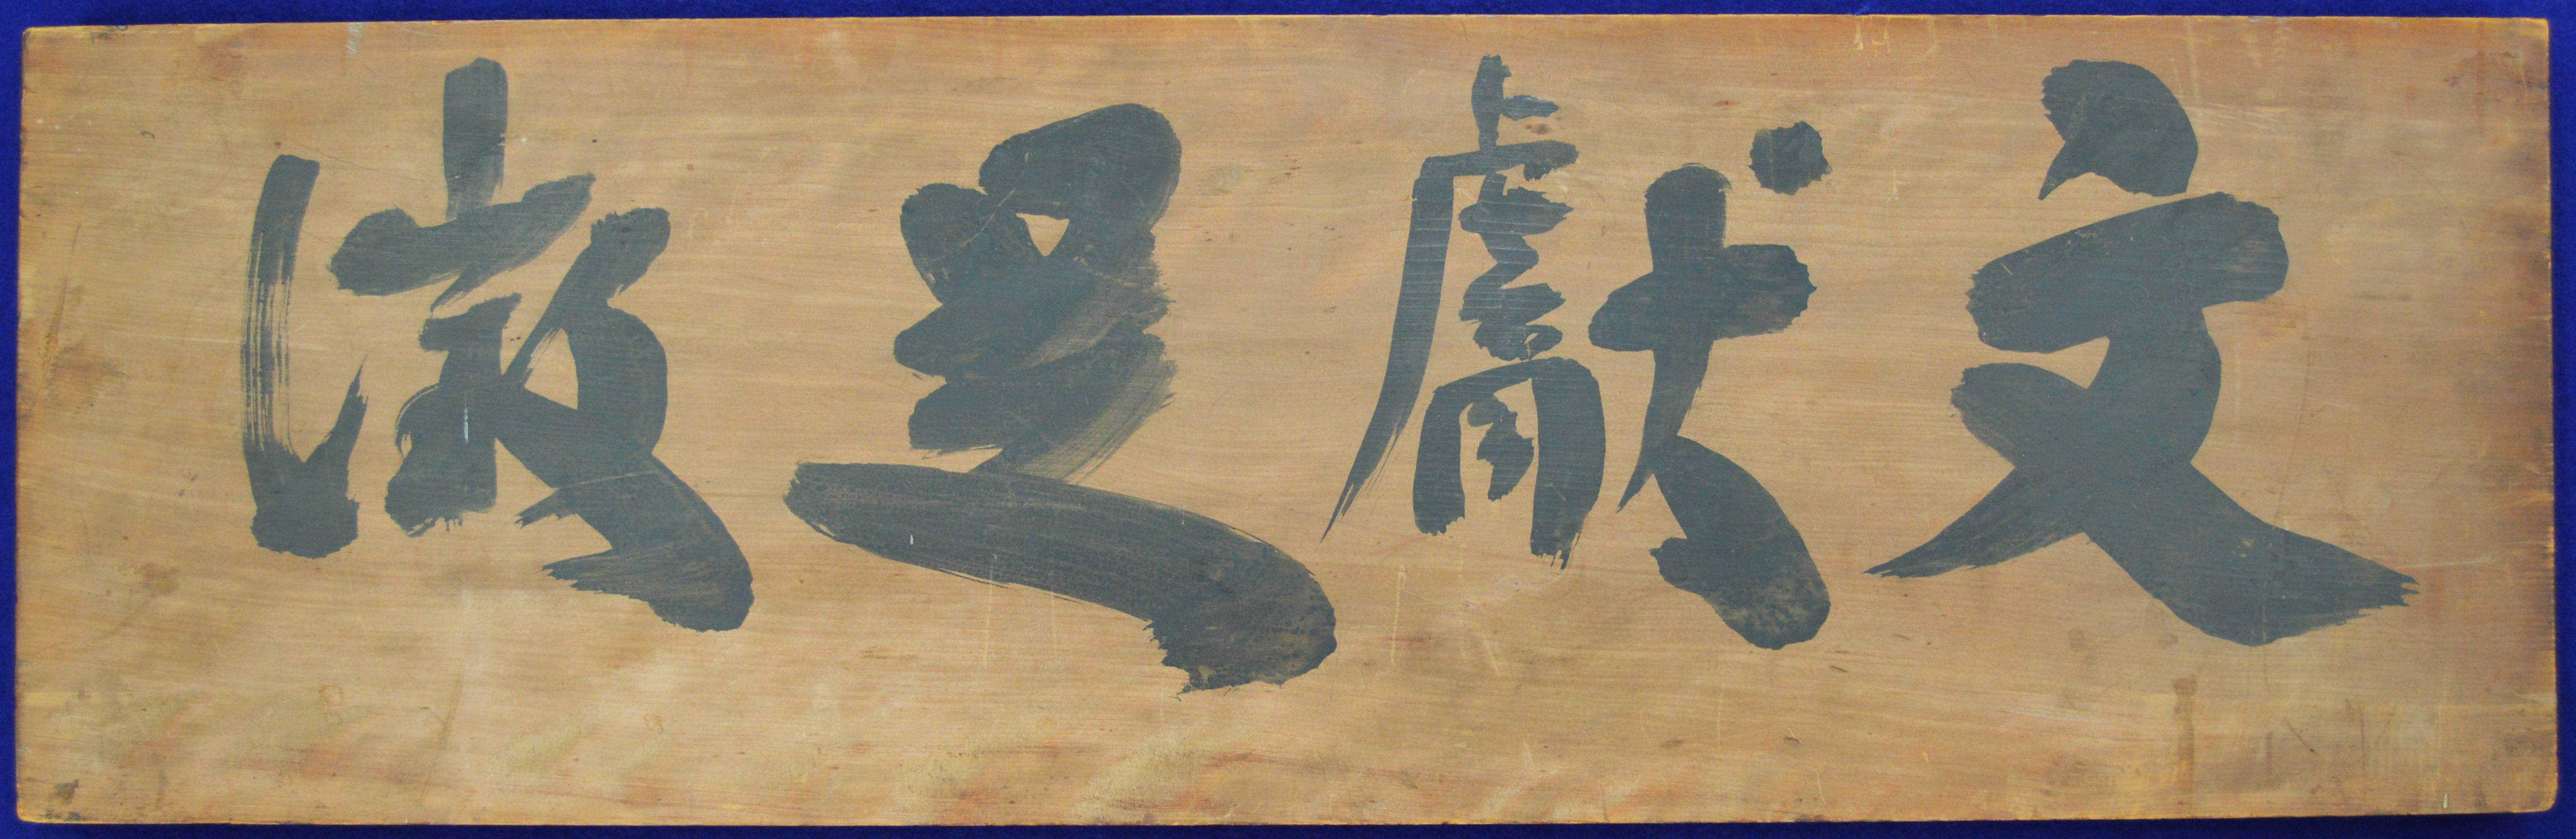 文獻足徵